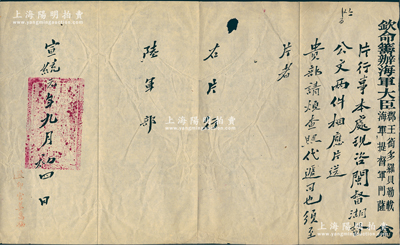 上海阳明拍卖
欽命籌辦海軍大臣郡王銜多羅貝勒載
海軍提督軍門薩
為
片行事本處現咨閩督湖督
公文兩件相應片送
貴部請煩查照代遞可也須至
片者
右片行
陸軍部
宣統 年九月 四日
上海阳明拍卖